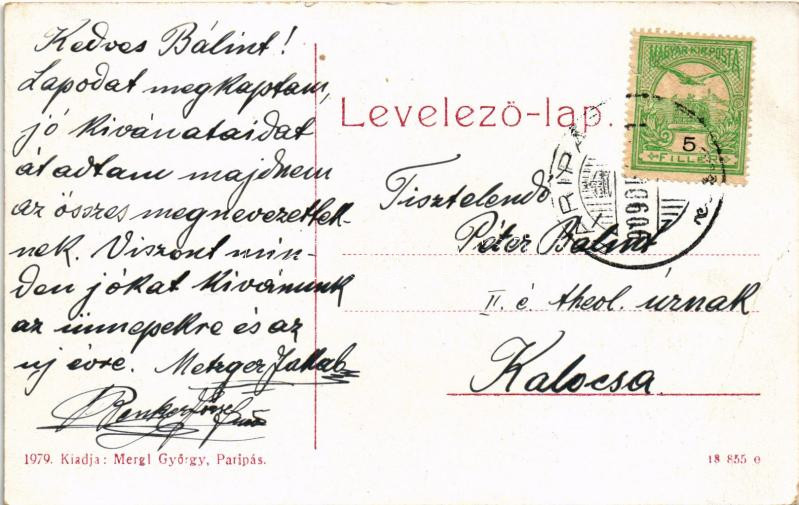 Kedves Bálint!
Lapodat megkaptam,
jó kivánataidat
átadtam majdnem
az összes megnevezettek-
nek. Viszont min-
den jókat kivánunk
az ünnepekre és az
uj évre. Metzger Jakab
Levelező-lap.
MAGYAR KIR. POSTA
5
FILLER
Tisztelendő
Péter Bálint
II. é. theol. úrnak
Kalocsa
1979. Kiadja: Mergl György, Paripás.
18 855 e